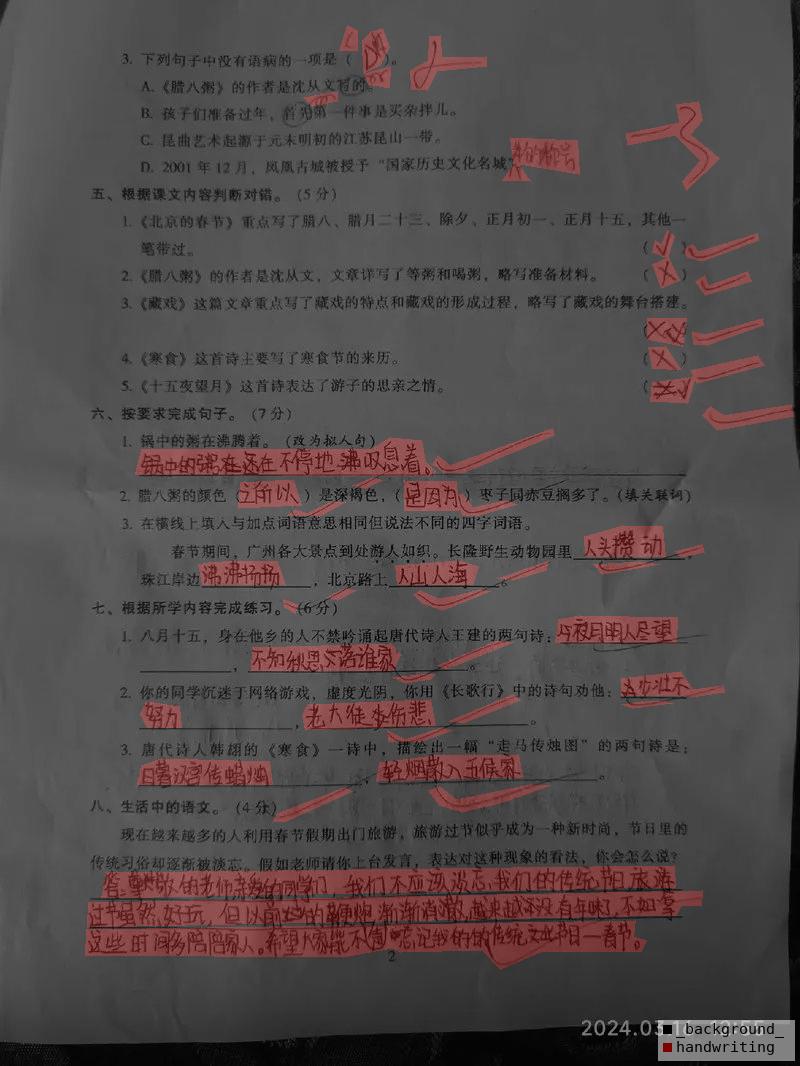 3. 下列句子中没有语病的一项是（ D ）。
A.《腊八粥》的作者是沈从文写的。
B. 孩子们准备过年，首先第一件事是买杂拌儿。
C. 昆曲艺术起源于元末明初的江苏昆山一带。
D. 2001 年 12 月，凤凰古城被授予“国家历史文化名城” 的称号
五、根据课文内容判断对错。（5 分）
1.《北京的春节》重点写了腊八、腊月二十三、除夕、正月初一、正月十五，其他一
笔带过。 （ √ ）
2.《腊八粥》的作者是沈从文，文章详写了等粥和喝粥，略写准备材料。 （ X ）
3.《藏戏》这篇文章重点写了藏戏的特点和藏戏的形成过程，略写了藏戏的舞台搭建。
（ X ）
4.《寒食》这首诗主要写了寒食节的来历。 （ X ）
5.《十五夜望月》这首诗表达了游子的思亲之情。 （ ）
六、按要求完成句子。（7 分）
1. 锅中的粥在沸腾着。（改为拟人句）
锅中的粥在还在不停地沸叹息着。
2. 腊八粥的颜色（之所以）是深褐色，（是因为）枣子同赤豆搁多了。（填关联词）
3. 在横线上填入与加点词语意思相同但说法不同的四字词语。
春节期间，广州各大景点到处游人如织。长隆野生动物园里 人头攒动 ，
珠江岸边 沸沸扬扬 ，北京路上 人山人海 。
七、根据所学内容完成练习。（6 分）
1. 八月十五，身在他乡的人不禁吟诵起唐代诗人王建的两句诗：今夜月明人尽望
，不知秋思落谁家 。
2. 你的同学沉迷于网络游戏，虚度光阴，你用《长歌行》中的诗句劝他：少壮不
努力 ，老大徒伤悲 。
3. 唐代诗人韩翃的《寒食》一诗中，描绘出一幅“走马传烛图”的两句诗是：
日暮汉宫传蜡烛 ，轻烟散入五侯家 。
八、生活中的语文。（4 分）
现在越来越多的人利用春节假期出门旅游，旅游过节似乎成为一种新时尚，节日里的
传统习俗却逐渐被淡忘。假如老师请你上台发言，表达对这种现象的看法，你会怎么说？
答：敬的老师亲爱的同学们，我们不应该淡忘我们的传统节日，旅游
过节虽然好玩，但以前的鞭炮渐渐消散，越来越还没有年味了，不如拿
这些时间多陪陪家人。希望大家能不忘记我们的传统文化节日——春节。
2
2024.03.1